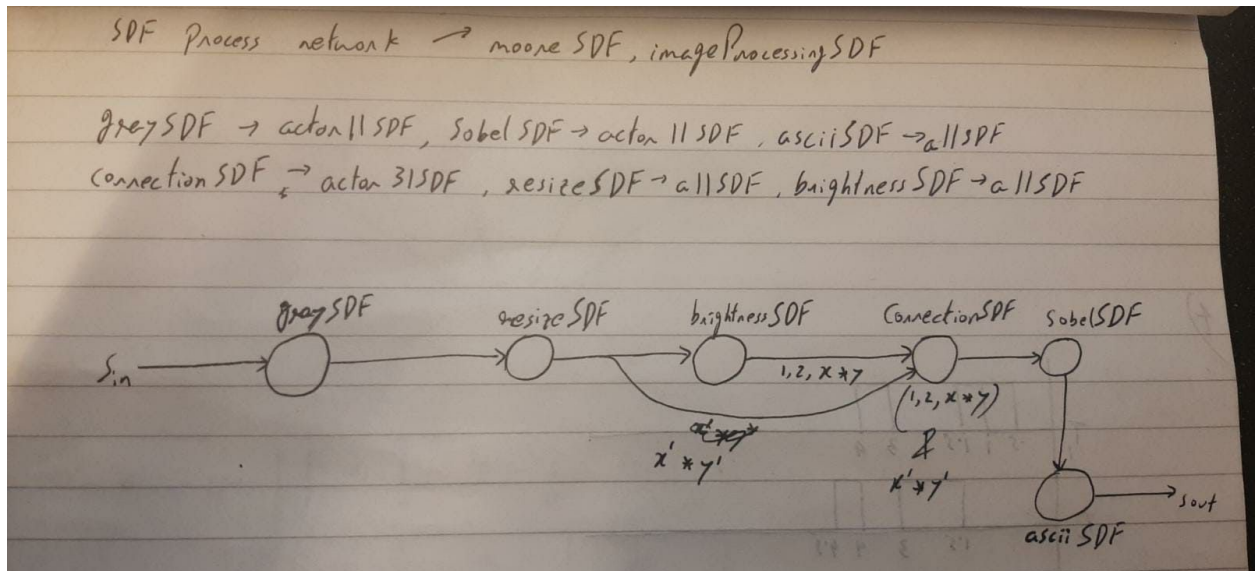 SDF Process network → mooreSDF, imageProcessingSDF
greySDF → actor11SDF, SobelSDF → actor11SDF, asciiSDF → a11SDF
ConnectionSDF → actor31SDF, resizeSDF → a11SDF, brightnessSDF → a11SDF
graySDF resizeSDF brightnessSDF ConnectionSDF SobelSDF
Sin
1, 2, x * y
(1, 2, x * y)
&
x' * y'
x' * y'
sout
asciiSDF